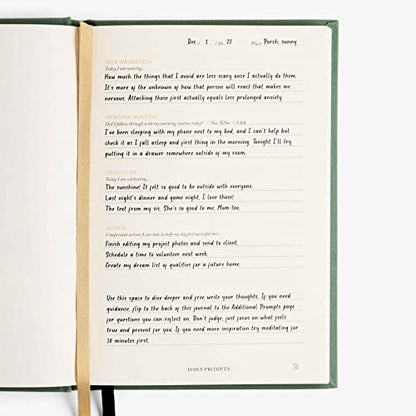 Dec / 1 / 20 22 Place: Porch, sunny
SELF-AWARENESS
Today I am noticing...
How much the things that I avoid are less scary once I actually do them.
It's more of the unknown of how that person will react that makes me
nervous. Attacking those first actually equals less prolonged anxiety.
MORNING ROUTINE
Did I follow through with my morning routine today? Yes No
I've been sleeping with my phone next to my bed, and I can't help but
check it as I fall asleep and first thing in the morning. Tonight I'll try
putting it in a drawer somewhere outside of my room.
GRATITUDE
Today I am celebrating...
The sunshine! It felt so good to be outside with everyone.
Last night's dinner and game night. I love those!
The text from my sis. She's so good to me. Mom too.
ACTION
3 important actions I can take to help my day feel successful are...
Finish editing my project photos and send to client.
Schedule a time to volunteer next week.
Create my dream list of qualities for a future home.
Use this space to dive deeper and free write your thoughts. If you need
guidance, flip to the back of this journal to the Additional Prompts page
for questions you can reflect on. Don't judge, just focus on what feels
true and present for you. If you need more inspiration try meditating for
10 minutes first.
DAILY PROMPTS 31